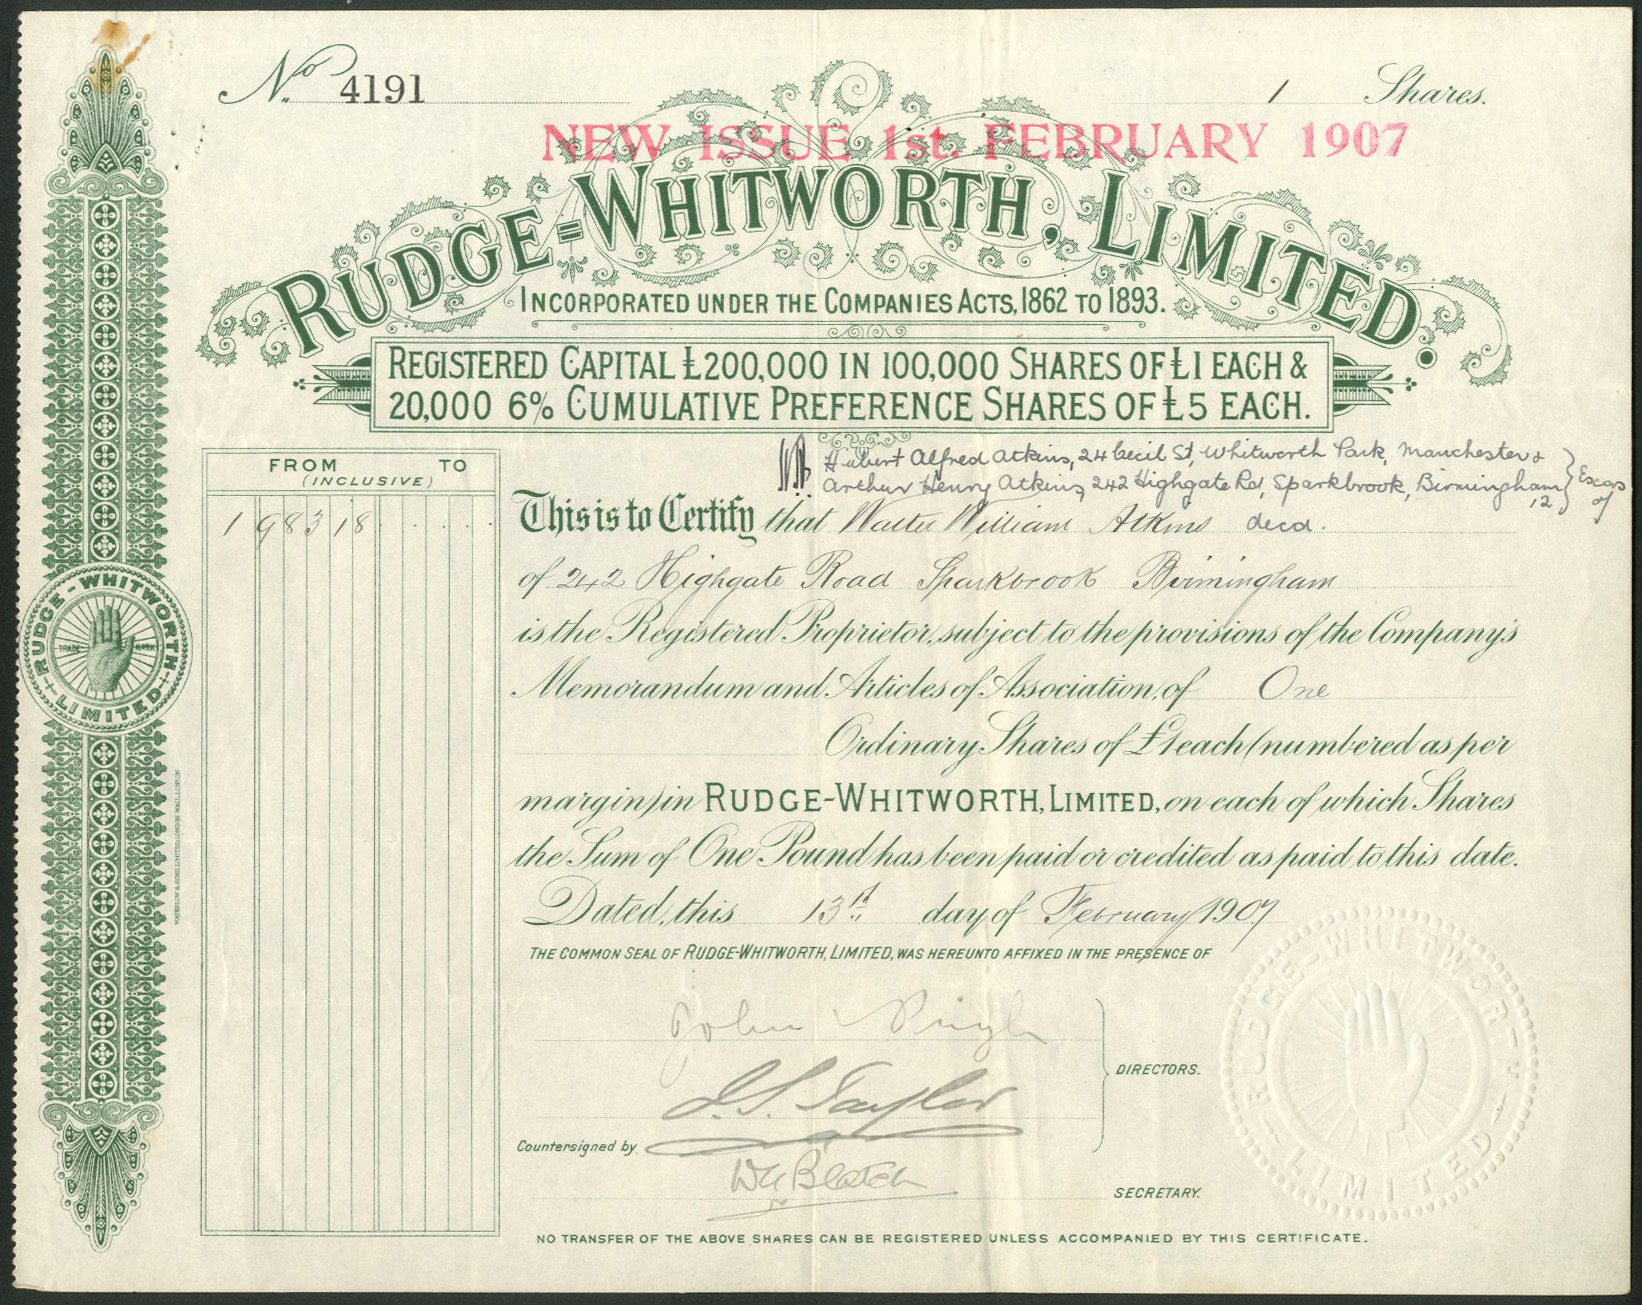 No. 4191 1 Shares.
NEW ISSUE 1st. FEBRUARY 1907
RUDGE=WHITWORTH, LIMITED.
INCORPORATED UNDER THE COMPANIES ACTS, 1862 TO 1893.
REGISTERED CAPITAL £200,000 IN 100,000 SHARES OF £1 EACH &
20,000 6% CUMULATIVE PREFERENCE SHARES OF £5 EACH.
FROM TO
(INCLUSIVE)
1 98318
Hubert Alfred Atkins, 24 Cecil St, Whitworth Park, Manchester &
Arthur Henry Atkins, 242 Highgate Rd, Sparkbrook, Birmingham, 12 } Excors of
This is to Certify that Walter William Atkins decd.
of 242 Highgate Road Sparkbrook Birmingham
is the Registered Proprietor, subject to the provisions of the Company's
Memorandum and Articles of Association, of One
Ordinary Shares of £1 each (numbered as per
margin) in RUDGE-WHITWORTH, LIMITED, on each of which Shares
the Sum of One Pound has been paid or credited as paid to this date.
Dated, this 13th day of February 1907
THE COMMON SEAL OF RUDGE-WHITWORTH, LIMITED, WAS HEREUNTO AFFIXED IN THE PRESENCE OF
John Pugh
DIRECTORS.
Taylor
Countersigned by
SECRETARY.
NO TRANSFER OF THE ABOVE SHARES CAN BE REGISTERED UNLESS ACCOMPANIED BY THIS CERTIFICATE.
RUDGE-WHITWORTH LIMITED
TRADE MARK
WATERLOW & SONS LIMITED, LONDON WALL, LONDON
RUDGE-WHITWORTH LIMITED